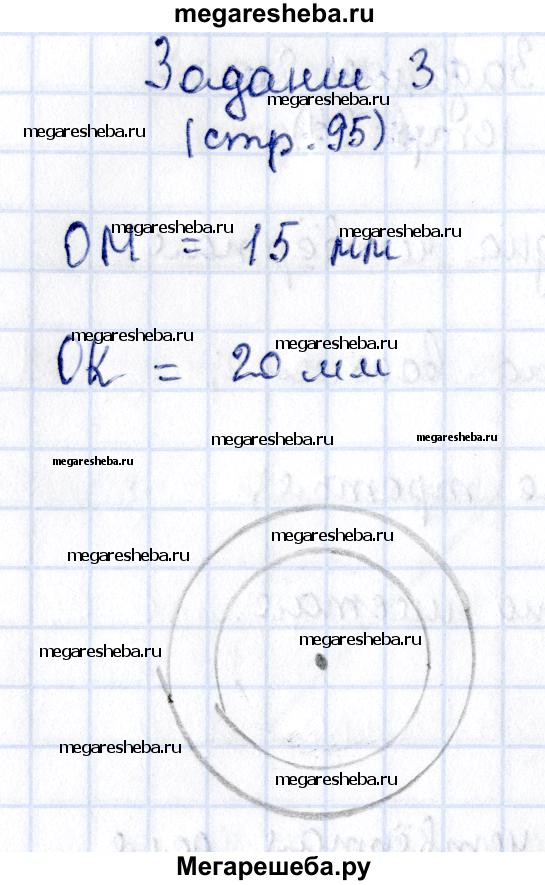 megaresheba.ru
Задание 3
megaresheba.ru
megaresheba.ru
(стр. 95)
megaresheba.ru
megaresheba.ru
ОМ = 15 мм
megaresheba.ru
megaresheba.ru
ОК = 20 мм
megaresheba.ru
megaresheba.ru
megaresheba.ru
megaresheba.ru
megaresheba.ru
megaresheba.ru
megaresheba.ru
megaresheba.ru
megaresheba.ru
Мегарешеба.ру